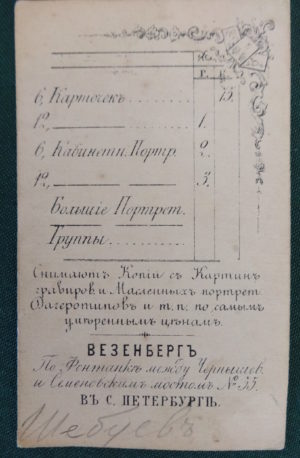 Р. К.
6, Карточекъ . . . . . . . . 75.
12, ——— ——— . . . . 1.
6, Кабинетн. Портр. 2.
12, ——— ——— 3.
Большіе Портрет.
Группы . . . . . . . .
Снимаютъ Копій съ Картинъ
гравиров. и Масленныхъ портрет
Дагеротиповъ и т. п. по самымъ
умѣреннымъ цѣнамъ.
ВЕЗЕНБЕРГЪ
По Фонтанкѣ между Чернышев.
и Семеновскимъ мостомъ № 55.
ВЪ С. ПЕТЕРБУРГѢ.
Шебуевъ